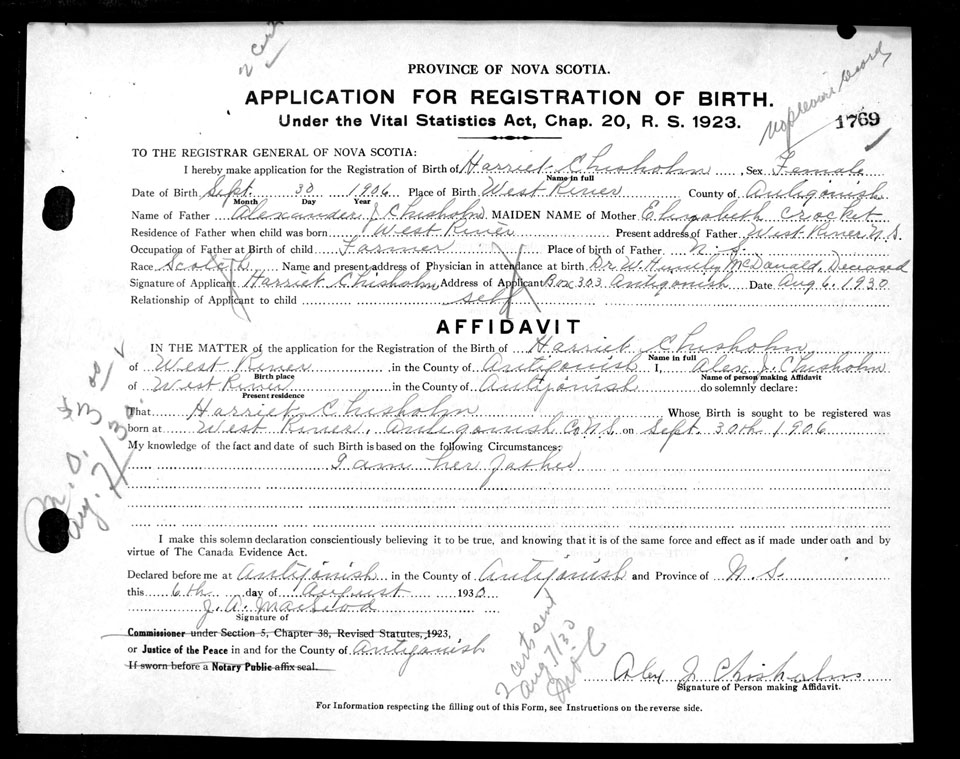 2 certs
PROVINCE OF NOVA SCOTIA.
APPLICATION FOR REGISTRATION OF BIRTH.
Under the Vital Statistics Act, Chap. 20, R. S. 1923.
No previous record
1769
TO THE REGISTRAR GENERAL OF NOVA SCOTIA:
I hereby make application for the Registration of Birth of Harriet Chisholm, Sex Female
Name in full
Date of Birth Sept. 30 1906 Place of Birth West River County of Antigonish
Month Day Year
Name of Father Alexander J Chisholm MAIDEN NAME of Mother Elizabeth Crocket
Residence of Father when child was born West River Present address of Father West River N.S.
Occupation of Father at Birth of child Farmer Place of birth of Father N. S.
Race Scotch Name and present address of Physician in attendance at birth Dr W. McDonald, Deceased
Signature of Applicant Harriet Chisholm Address of Applicant Box 303 Antigonish Date Aug 6, 1930
Relationship of Applicant to child self
AFFIDAVIT
IN THE MATTER of the application for the Registration of the Birth of Harriet Chisholm
Name in full
of West River, in the County of Antigonish I, Alex J. Chisholm
Birth place Name of person making Affidavit
of West River in the County of Antigonish do solemnly declare:
Present residence
That Harriet Chisholm Whose Birth is sought to be registered was
born at West River, Antigonish Co. N.S. on Sept 30th 1906
My knowledge of the fact and date of such Birth is based on the following Circumstances:
I am her father
M. O. $3.00
Aug. 7/30
I make this solemn declaration conscientiously believing it to be true, and knowing that it is of the same force and effect as if made under oath and by
virtue of The Canada Evidence Act.
Declared before me at Antigonish in the County of Antigonish and Province of N. S.
this 6th day of August 1930
J. A. MacLeod
Signature of
Commissioner under Section 5, Chapter 38, Revised Statutes, 1923,
or Justice of the Peace in and for the County of Antigonish
If sworn before a Notary Public affix seal.
2 certs sent
Aug 7/30
Alex J Chisholm
Signature of Person making Affidavit.
For Information respecting the filling out of this Form, see Instructions on the reverse side.